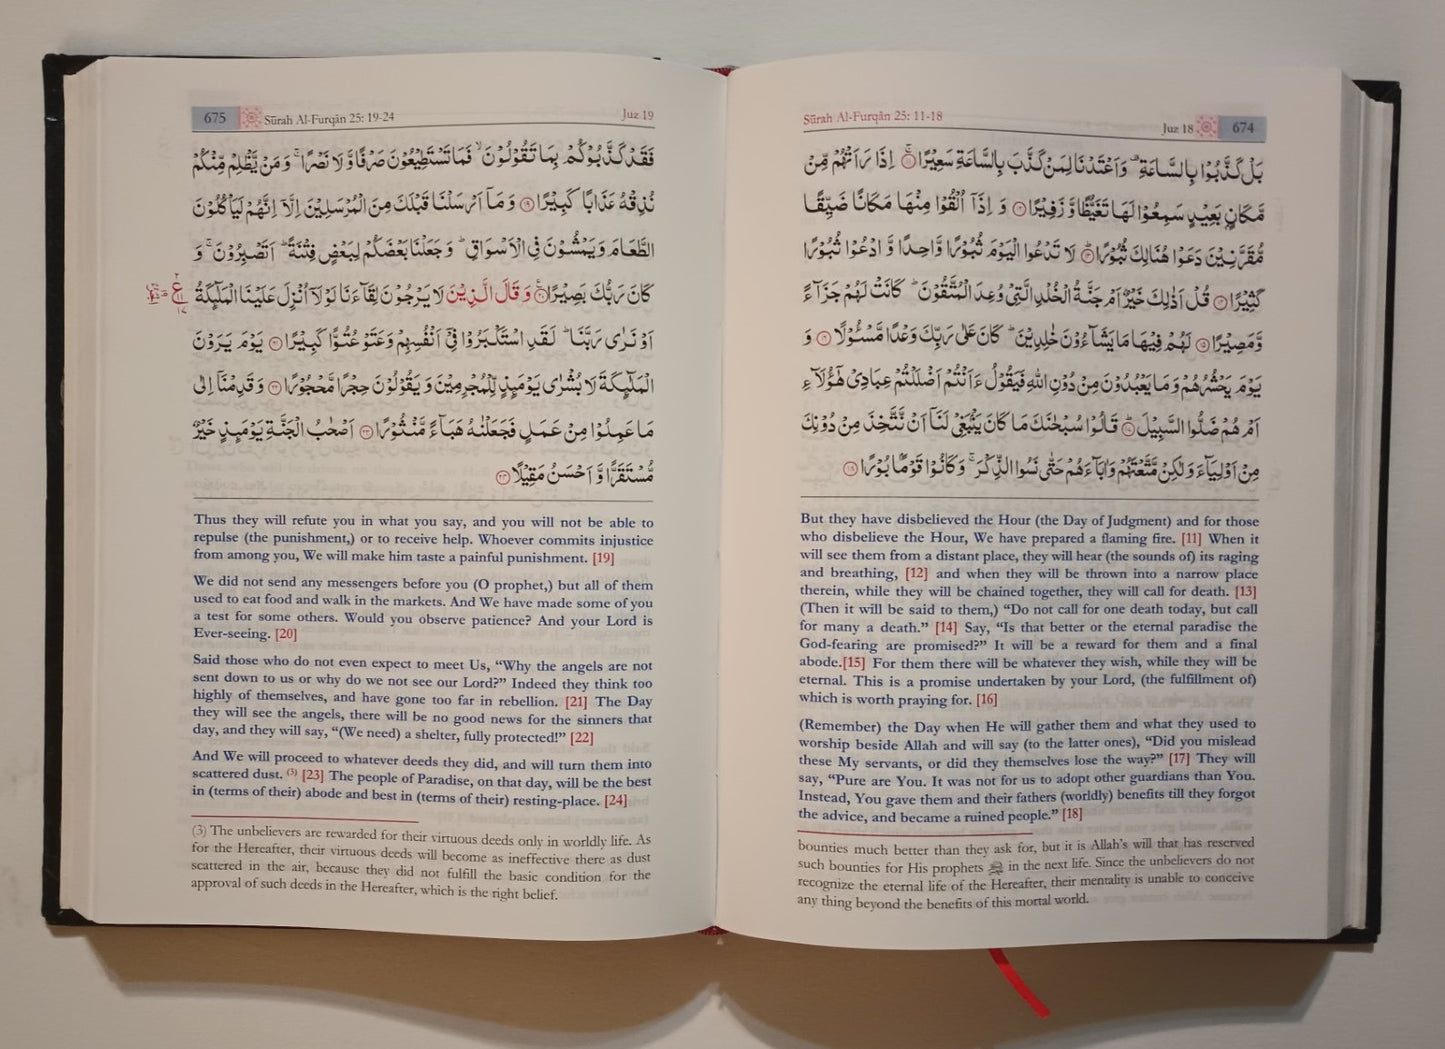 Sūrah Al-Furqān 25: 11-18
Juz 18
674
بَلْ كَذَّبُوْا بِالسَّاعَةِ ۫ وَاَعْتَدْنَا لِمَنْ كَذَّبَ بِالسَّاعَةِ سَعِيْرًا ۚ۝۱۱ اِذَا رَاَتْهُمْ مِّنْ
مَّكَانٍۭ بَعِيْدٍ سَمِعُوْا لَهَا تَغَيُّظًا وَّ زَفِيْرًا ۝۱۲ وَ اِذَاۤ اُلْقُوْا مِنْهَا مَكَانًا ضَيِّقًا
مُّقَرَّنِيْنَ دَعَوْا هُنَالِكَ ثُبُوْرًا ؕ۝۱۳ لَا تَدْعُوا الْيَوْمَ ثُبُوْرًا وَّاحِدًا وَّ ادْعُوْا ثُبُوْرًا
كَثِيْرًا ۝۱۴ قُلْ اَذٰلِكَ خَيْرٌ اَمْ جَنَّةُ الْخُلْدِ الَّتِيْ وُعِدَ الْمُتَّقُوْنَ ؕ كَانَتْ لَهُمْ جَزَآءً
وَّ مَصِيْرًا ۝۱۵ لَهُمْ فِيْهَا مَا يَشَآءُوْنَ خٰلِدِيْنَ ؕ كَانَ عَلٰى رَبِّكَ وَعْدًا مَّسْـُٔوْلًا ۝۱۶ وَ
يَوْمَ يَحْشُرُهُمْ وَ مَا يَعْبُدُوْنَ مِنْ دُوْنِ اللّٰهِ فَيَقُوْلُ ءَاَنْتُمْ اَضْلَلْتُمْ عِبَادِيْ هٰۤؤُلَآءِ
اَمْ هُمْ ضَلُّوا السَّبِيْلَ ؕ۝۱۷ قَالُوْا سُبْحٰنَكَ مَا كَانَ يَنْۢبَغِيْ لَنَاۤ اَنْ نَّتَّخِذَ مِنْ دُوْنِكَ
مِنْ اَوْلِيَآءَ وَ لٰكِنْ مَّتَّعْتَهُمْ وَ اٰبَآءَهُمْ حَتّٰى نَسُوا الذِّكْرَ ۚ وَ كَانُوْا قَوْمًۢا بُوْرًا ۝۱۸
But they have disbelieved the Hour (the Day of Judgment) and for those
who disbelieve the Hour, We have prepared a flaming fire. [11] When it
will see them from a distant place, they will hear (the sounds of) its raging
and breathing, [12] and when they will be thrown into a narrow place
therein, while they will be chained together, they will call for death. [13]
(Then it will be said to them,) “Do not call for one death today, but call
for many a death.” [14] Say, “Is that better or the eternal paradise the
God-fearing are promised?” It will be a reward for them and a final
abode.[15] For them there will be whatever they wish, while they will be
eternal. This is a promise undertaken by your Lord, (the fulfillment of)
which is worth praying for. [16]
(Remember) the Day when He will gather them and what they used to
worship beside Allah and will say (to the latter ones), “Did you mislead
these My servants, or did they themselves lose the way?” [17] They will
say, “Pure are You. It was not for us to adopt other guardians than You.
Instead, You gave them and their fathers (worldly) benefits till they forgot
the advice, and became a ruined people.” [18]
bounties much better than they ask for, but it is Allah’s will that has reserved
such bounties for His prophets ﷺ in the next life. Since the unbelievers do not
recognize the eternal life of the Hereafter, their mentality is unable to conceive
any thing beyond the benefits of this mortal world.
675
Sūrah Al-Furqān 25: 19-24
Juz 19
فَقَدْ كَذَّبُوْكُمْ بِمَا تَقُوْلُوْنَ ۙ فَمَا تَسْتَطِيْعُوْنَ صَرْفًا وَّ لَا نَصْرًا ۚ وَ مَنْ يَّظْلِمْ مِّنْكُمْ
نُذِقْهُ عَذَابًا كَبِيْرًا ۝۱۹ وَ مَاۤ اَرْسَلْنَا قَبْلَكَ مِنَ الْمُرْسَلِيْنَ اِلَّاۤ اِنَّهُمْ لَيَاْكُلُوْنَ
الطَّعَامَ وَ يَمْشُوْنَ فِي الْاَسْوَاقِ ؕ وَ جَعَلْنَا بَعْضَكُمْ لِبَعْضٍ فِتْنَةً ؕ اَتَصْبِرُوْنَ ۚ وَ
كَانَ رَبُّكَ بَصِيْرًا ۝۲۰ وَ قَالَ الَّذِيْنَ لَا يَرْجُوْنَ لِقَآءَنَا لَوْ لَاۤ اُنْزِلَ عَلَيْنَا الْمَلٰٓىِٕكَةُ
اَوْ نَرٰى رَبَّنَا ؕ لَقَدِ اسْتَكْبَرُوْا فِيْۤ اَنْفُسِهِمْ وَ عَتَوْ عُتُوًّا كَبِيْرًا ۝۲۱ يَوْمَ يَرَوْنَ
الْمَلٰٓىِٕكَةَ لَا بُشْرٰى يَوْمَىِٕذٍ لِّلْمُجْرِمِيْنَ وَ يَقُوْلُوْنَ حِجْرًا مَّحْجُوْرًا ۝۲۲ وَ قَدِمْنَاۤ اِلٰى
مَا عَمِلُوْا مِنْ عَمَلٍ فَجَعَلْنٰهُ هَبَآءً مَّنْثُوْرًا ۝۲۳ اَصْحٰبُ الْجَنَّةِ يَوْمَىِٕذٍ خَيْرٌ
مُّسْتَقَرًّا وَّ اَحْسَنُ مَقِيْلًا ۝۲۴
Thus they will refute you in what you say, and you will not be able to
repulse (the punishment,) or to receive help. Whoever commits injustice
from among you, We will make him taste a painful punishment. [19]
We did not send any messengers before you (O prophet,) but all of them
used to eat food and walk in the markets. And We have made some of you
a test for some others. Would you observe patience? And your Lord is
Ever-seeing. [20]
Said those who do not even expect to meet Us, “Why the angels are not
sent down to us or why do we not see our Lord?” Indeed they think too
highly of themselves, and have gone too far in rebellion. [21] The Day
they will see the angels, there will be no good news for the sinners that
day, and they will say, “(We need) a shelter, fully protected!” [22]
And We will proceed to whatever deeds they did, and will turn them into
scattered dust. (3) [23] The people of Paradise, on that day, will be the best
in (terms of their) abode and best in (terms of their) resting-place. [24]
(3) The unbelievers are rewarded for their virtuous deeds only in worldly life. As
for the Hereafter, their virtuous deeds will become as ineffective there as dust
scattered in the air, because they did not fulfill the basic condition for the
approval of such deeds in the Hereafter, which is the right belief.